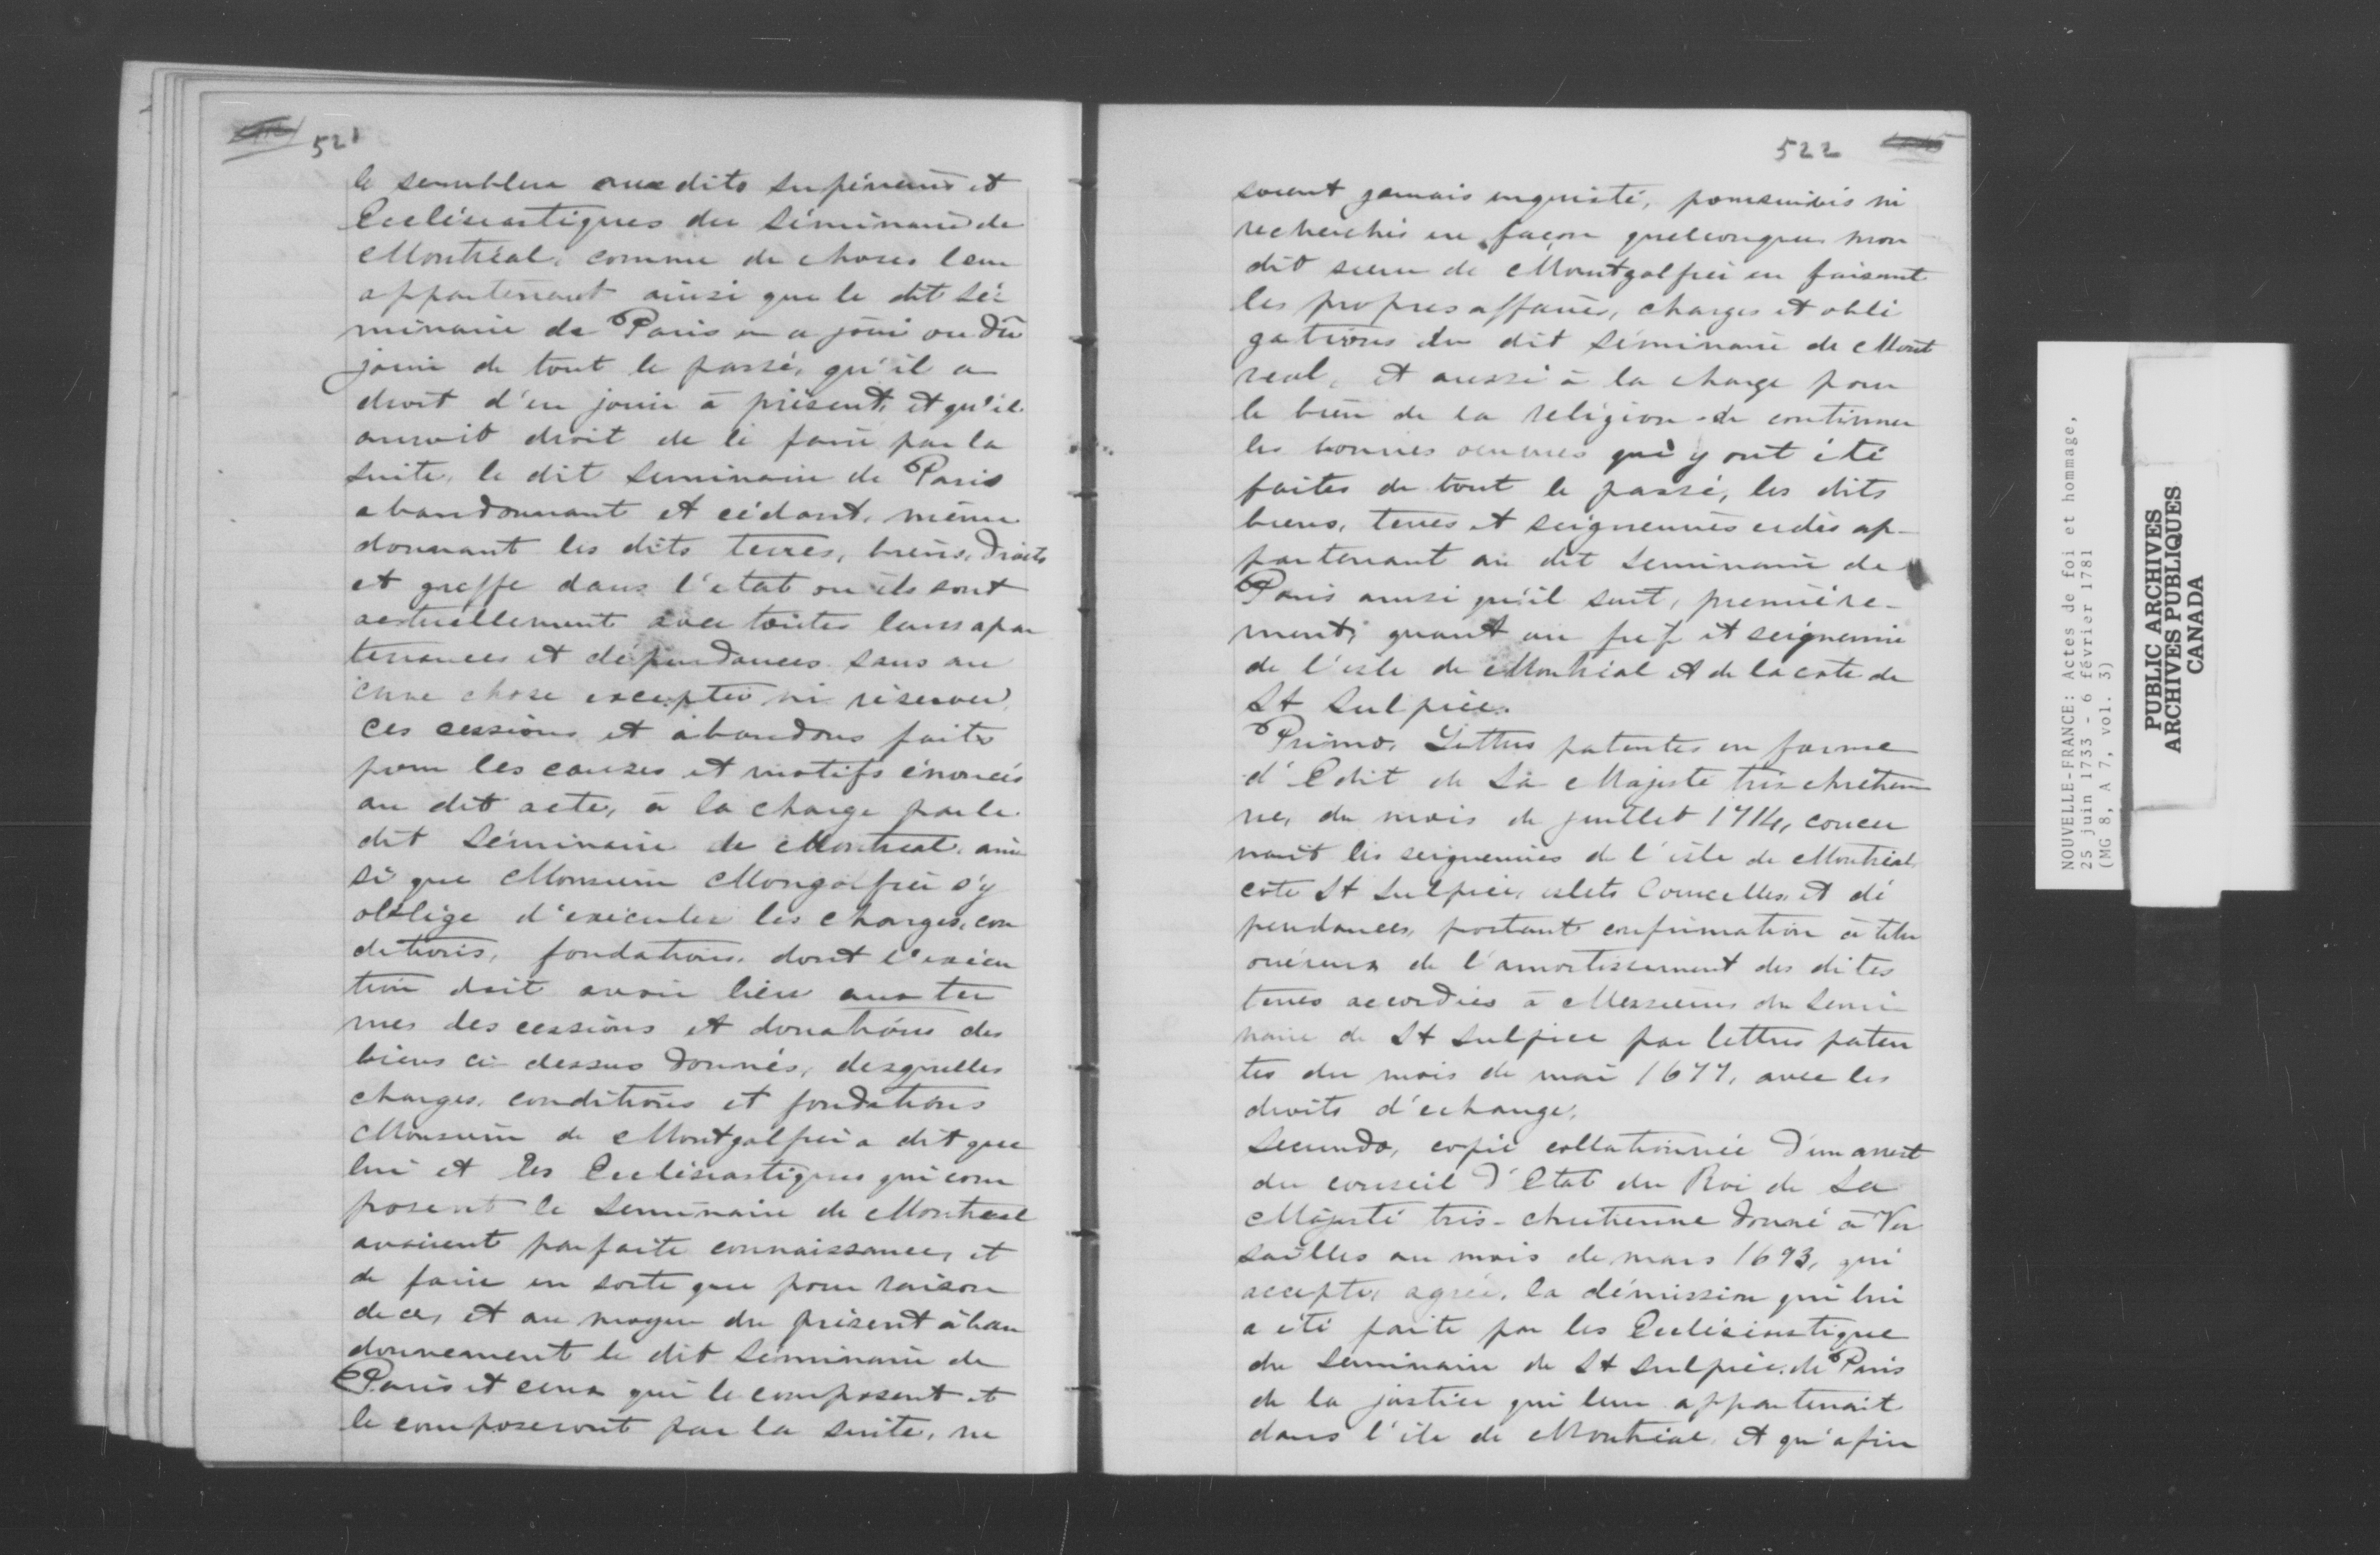 521
le semblera aux dits supérieurs et
Ecclésiastiques du Séminaire de
Montréal, comme de choses leur
appartenant ainsi que le dit sé
minaire de Paris en a joui ou dû
jouir de tout le passé, qu'il a
droit d'en jouir à présent, et qu'il
auroit droit de le faire par la
suite, le dit séminaire de Paris
abandonnant et cédant, même
donnant les dits terres, biens, droits
et greffe dans l'etat ou ils sont
actuellement avec toutes leurs apar
tenances et dépendances sans au
cune chose excepter ni réserver,
ces cessions et abandons faits
pour les causes et motifs énoncés
au dit acte, à la charge par le
dit Séminaire de Montreal, ain
si que Monsieur Mongolfier s'y
oblige d'exécuter les charges, con
ditions, fondations, dont l'exécu
tion doit avoir lieu aux ter
mes des cessions et donations des
biens ci dessus donnés, desquelles
charges, conditions et fondations
Monsieur de Montgolfier a dit que
lui et les Ecclésiastiques qui com
posent le Séminaire de Montreal
avaient parfaite connaissance, et
de faire en sorte que pour raison
de ce, et au moyen du présent aban
donnement le dit Séminaire de
Paris et ceux qui le composent et
le composeront par la suite, ne
522
soient jamais inquiété, poursuivis ni
recherchés en façon quelconque mon
dit sieur de Montgolfier en faisant
les propres affaires, charges et obli
gations du dit Séminaire de Mont
real, et aussi à la charge pour
le bien de la religion de continuer
les bonnes oeuvres qui y ont été
faites de tout le passé, les dits
biens, terres et seigneuries cedés ap-
partenant au dit Seminaire de
Paris ainsi qu'il suit, première-
ment, quant au fief et seigneurie
de l'isle de Montréal et de la cote de
St Sulpice.
Primo, Lettres patentes en forme
d'Edit de Sa Majesté très chrétien
ne, du mois de juillet 1714, concer
nant les seigneuries de l'isle de Montréal,
côte St Sulpice, islets Courcelles, et dé
pendances, portant confirmation à titre
onéreux de l'amortissement des dites
terres accordées à Messieurs du Semi-
naire de St Sulpice par lettres paten
tes du mois de mai 1677, avec les
droits d'echange.
Secundo, copie collationnée d'un arrest
du conseil d'Etat du Roi de Sa
Majesté très-chretienne donné à Ver
sailles au mois de mars 1693, qui
accepte, agrée, la démission qui lui
a été faite par les Ecclésiastique
du Seminaire de St Sulpice de Paris
de la justice qui leur appartenait
dans l'île de Montréal, et qu'afin
NOUVELLE-FRANCE: Actes de foi et hommage,
25 juin 1733 - 6 février 1781
(MG 8, A 7, vol. 3)
PUBLIC ARCHIVES
ARCHIVES PUBLIQUES
CANADA